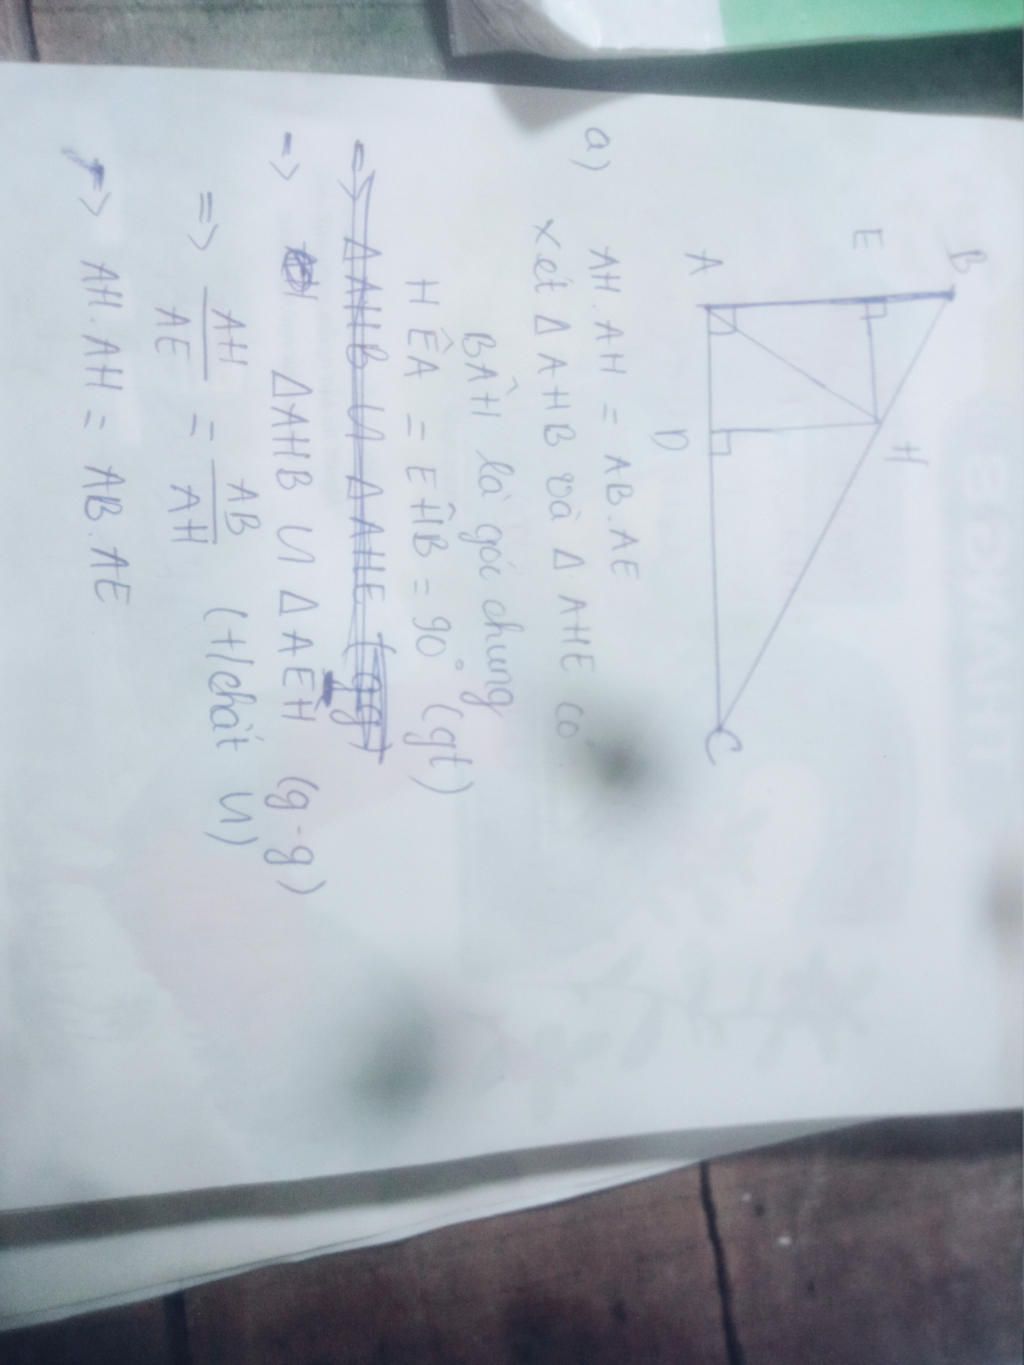 B
E
H
A
D
C
a) AH.AH = AB.AE
Xét Δ AHB và Δ AHE có
BÂH là góc chung
HÊA = EĤB = 90° (gt)
=> ΔAHB ᔕ ΔAHE (gg)
=> ΔAHB ᔕ ΔAEH (g-g)
=> AH/AE = AB/AH (t/chất ᔕ)
=> AH.AH = AB.AE